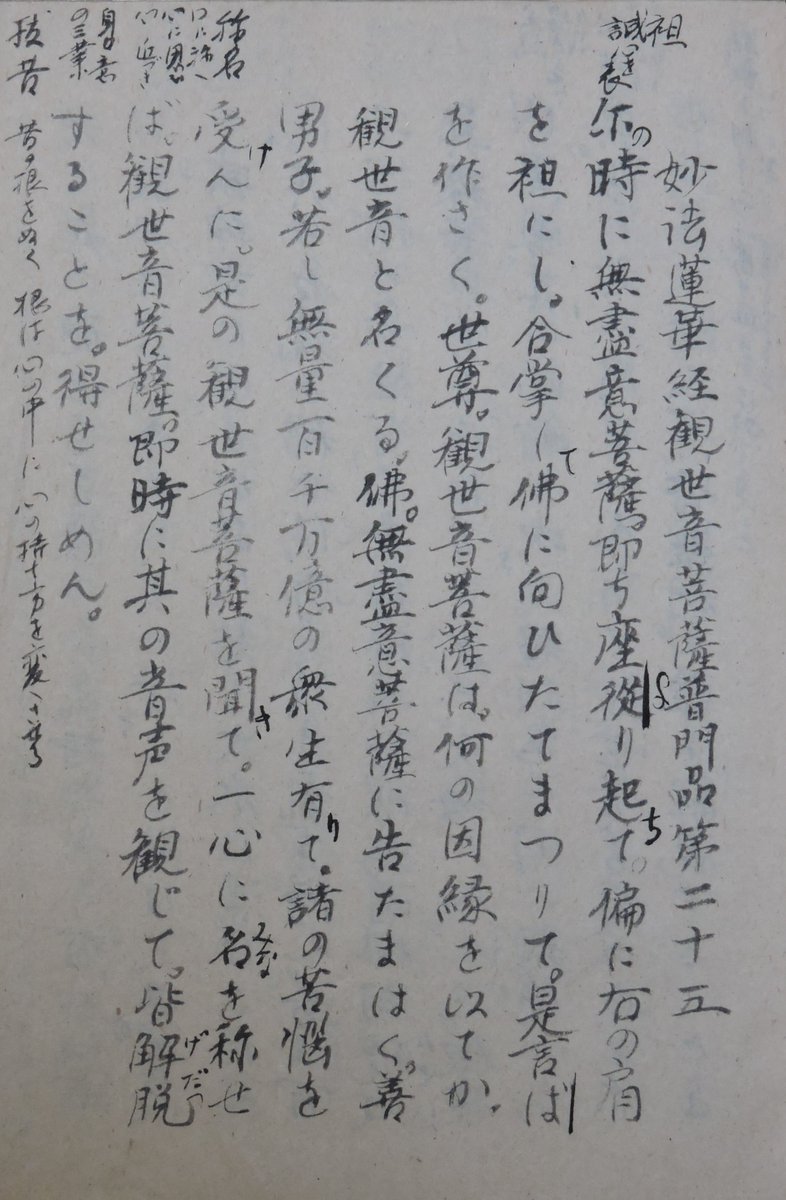 妙法蓮華経観世音菩薩普門品第二十五
尓の時に無盡意菩薩。即ち座從り起ちて。偏に右の肩
を袒にし。合掌して佛に向ひたてまつりて。是言ば
を作さく。世尊。観世音菩薩は。何の因縁を以てか。
観世音と名くる。佛。無盡意菩薩に告たまはく。善
男子。若し無量百千万億の衆生有りて。諸の苦惱を
受けんに。是の観世音菩薩を聞きて。一心に名を称せ
ば。観世音菩薩。即時に其の音声を観じて。皆解脱
することを。得せしめん。
袒
誠
称名
口に称へ
身口意
の三業
抜苦 苦の根をぬく 根は心の中に 心の持ち方を変へ